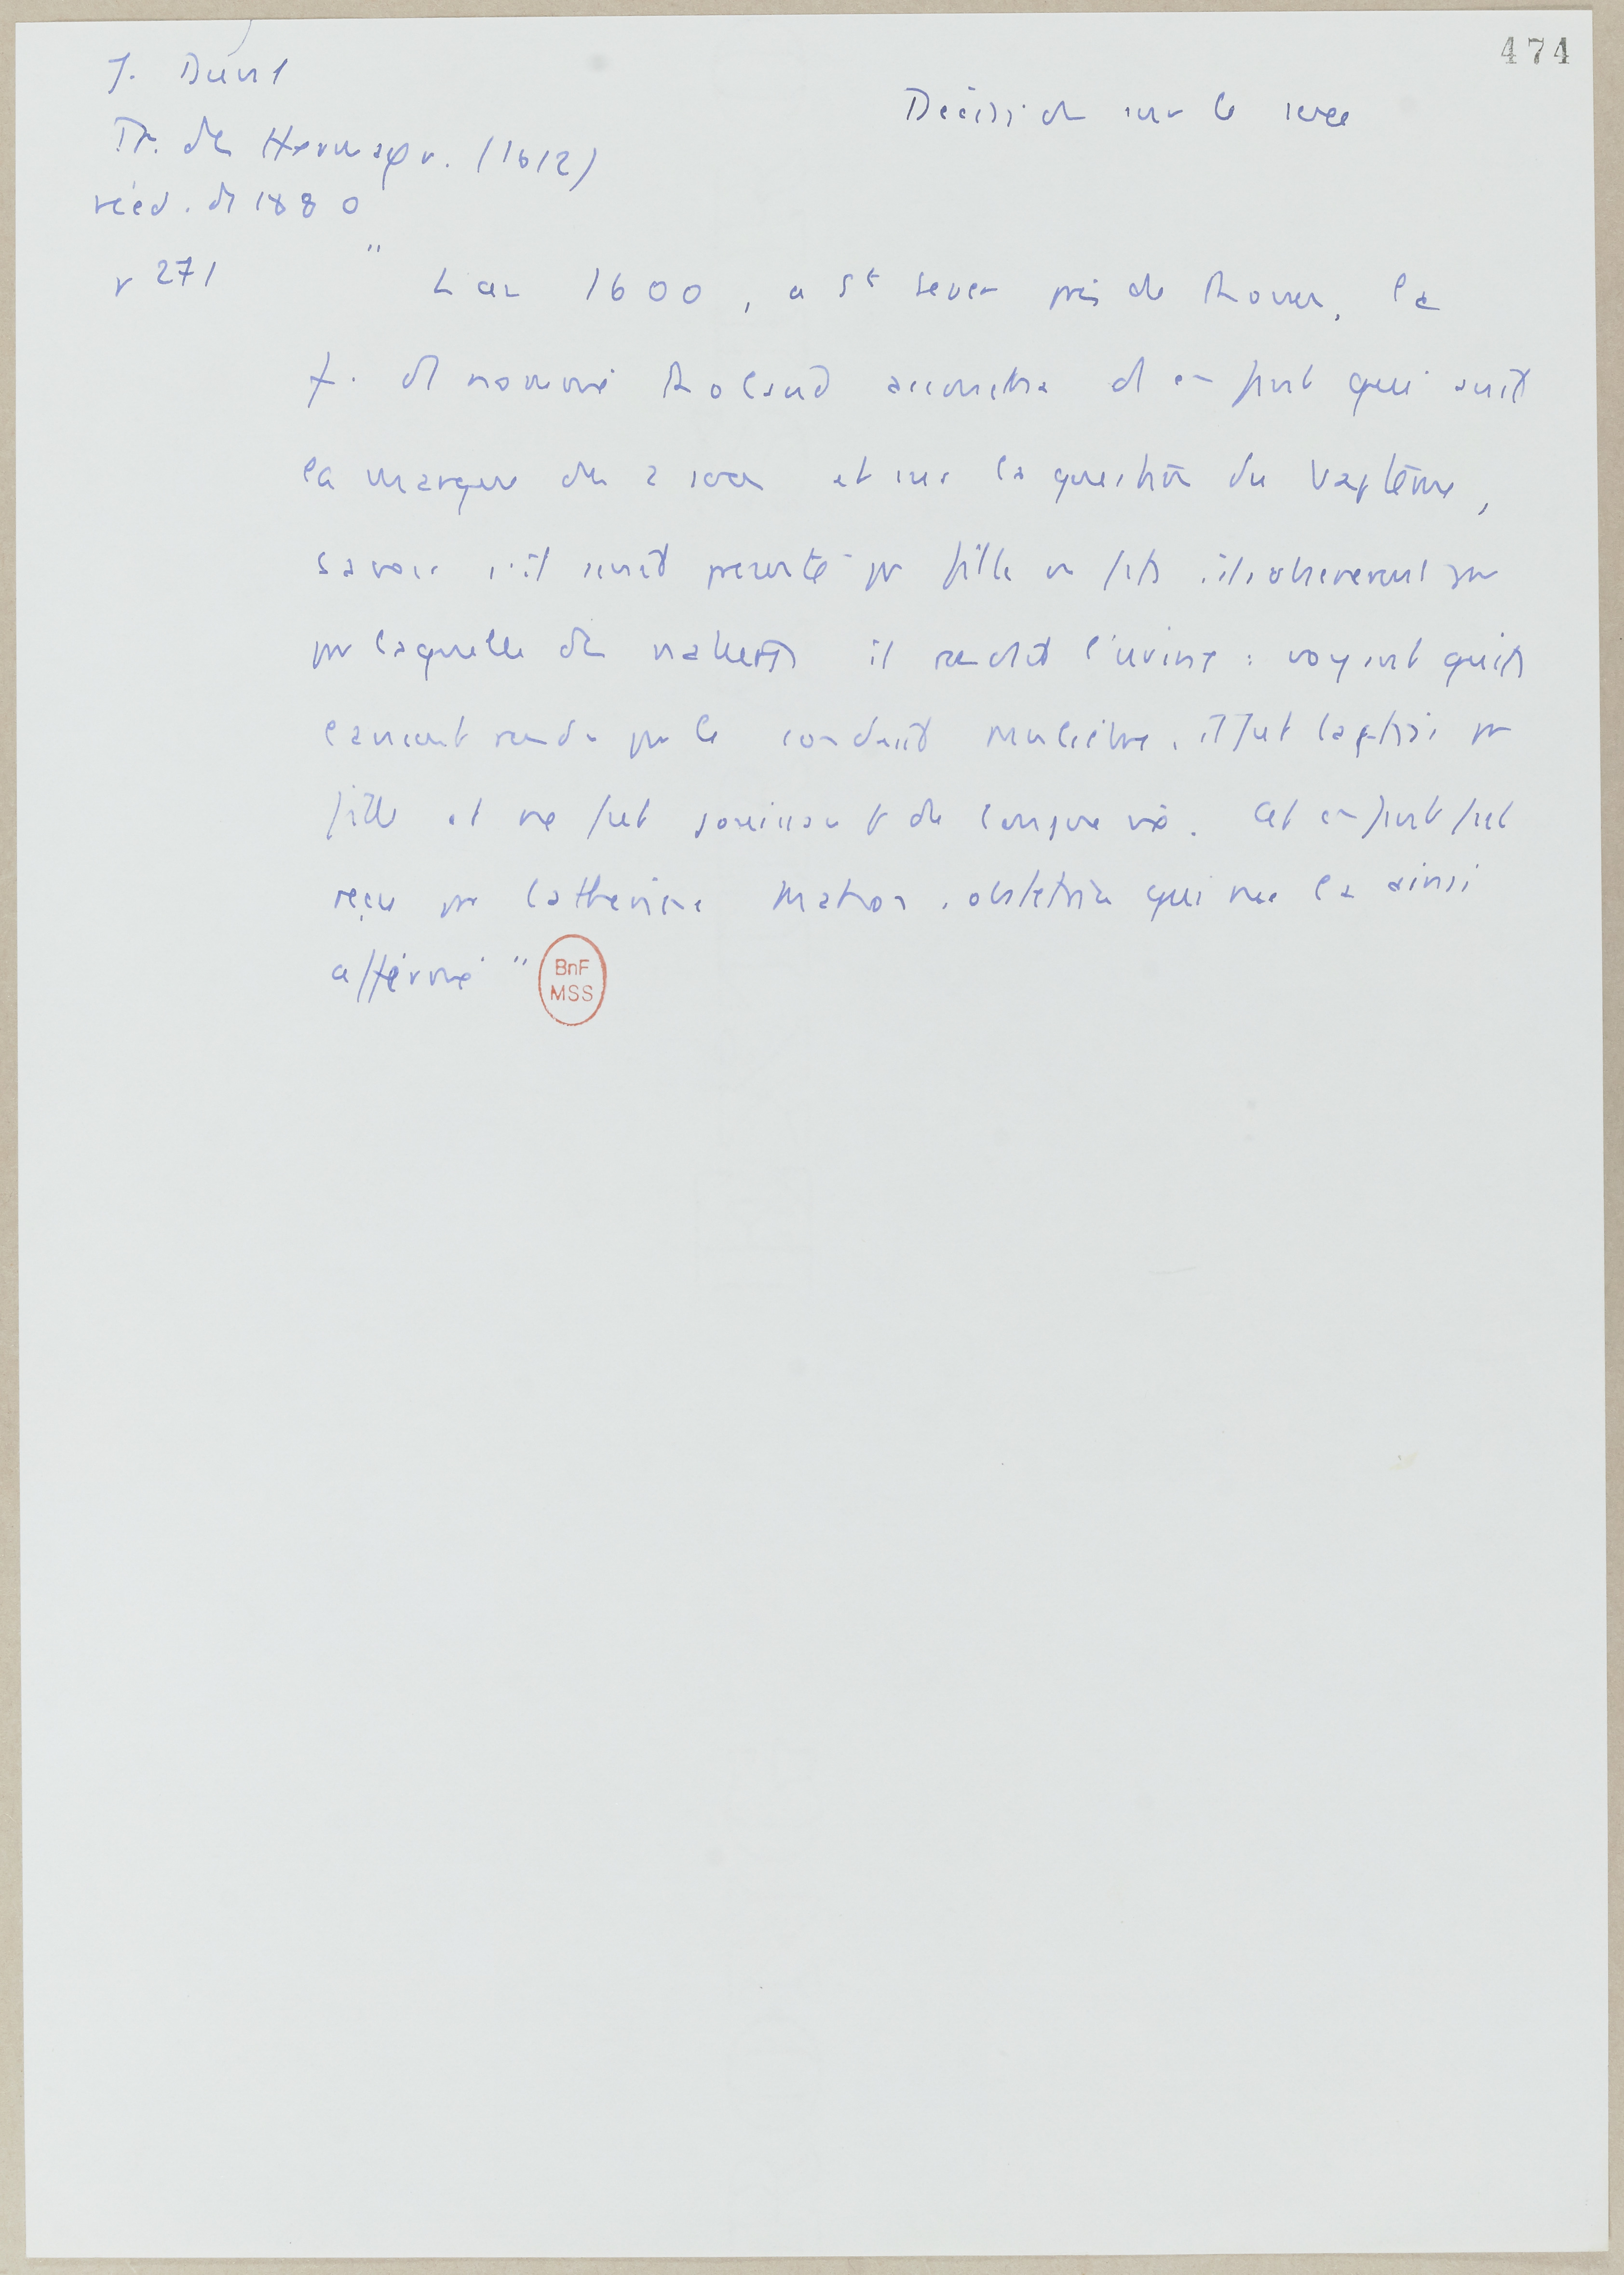 474
J. Duval
Tr. des Hermaphr. (1612)
rééd. de 1880
p 271
Décision sur le sexe
" L'an 1600, a St Sever près de Rouen, la
f. d nommé Roland accoucha d'enfant qui avait
la marque des 2 sexes et sur la question du baptême,
savoir s'il serait presenté pr fille ou fils, ils observerent
par laquelle des natures il rendait l'urine : voyant qu'ils
l'avaient rendu par le conduit muliebre, il fut baptisé pr
fille et ne fut jouissant de longue vie. Cet enfant fut
reçu par Catherine Matron, obstetrix qui me l'a ainsi
affirmé "
BnF
MSS